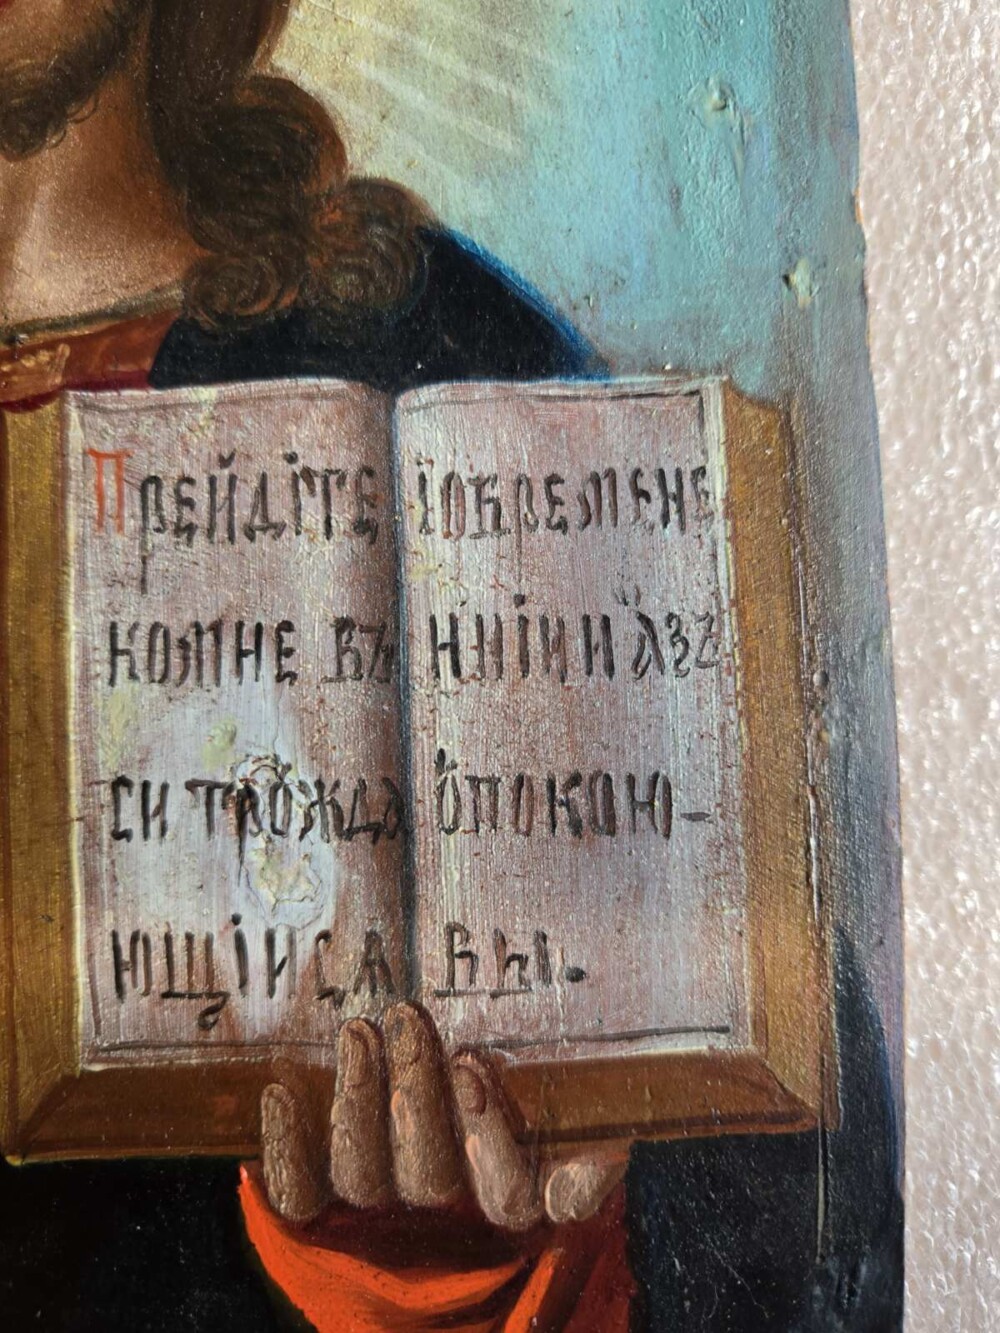 Прейдіте
комне въ
си трожда
ющіися
іобремене
нніи и азъ
опокою-
вы.